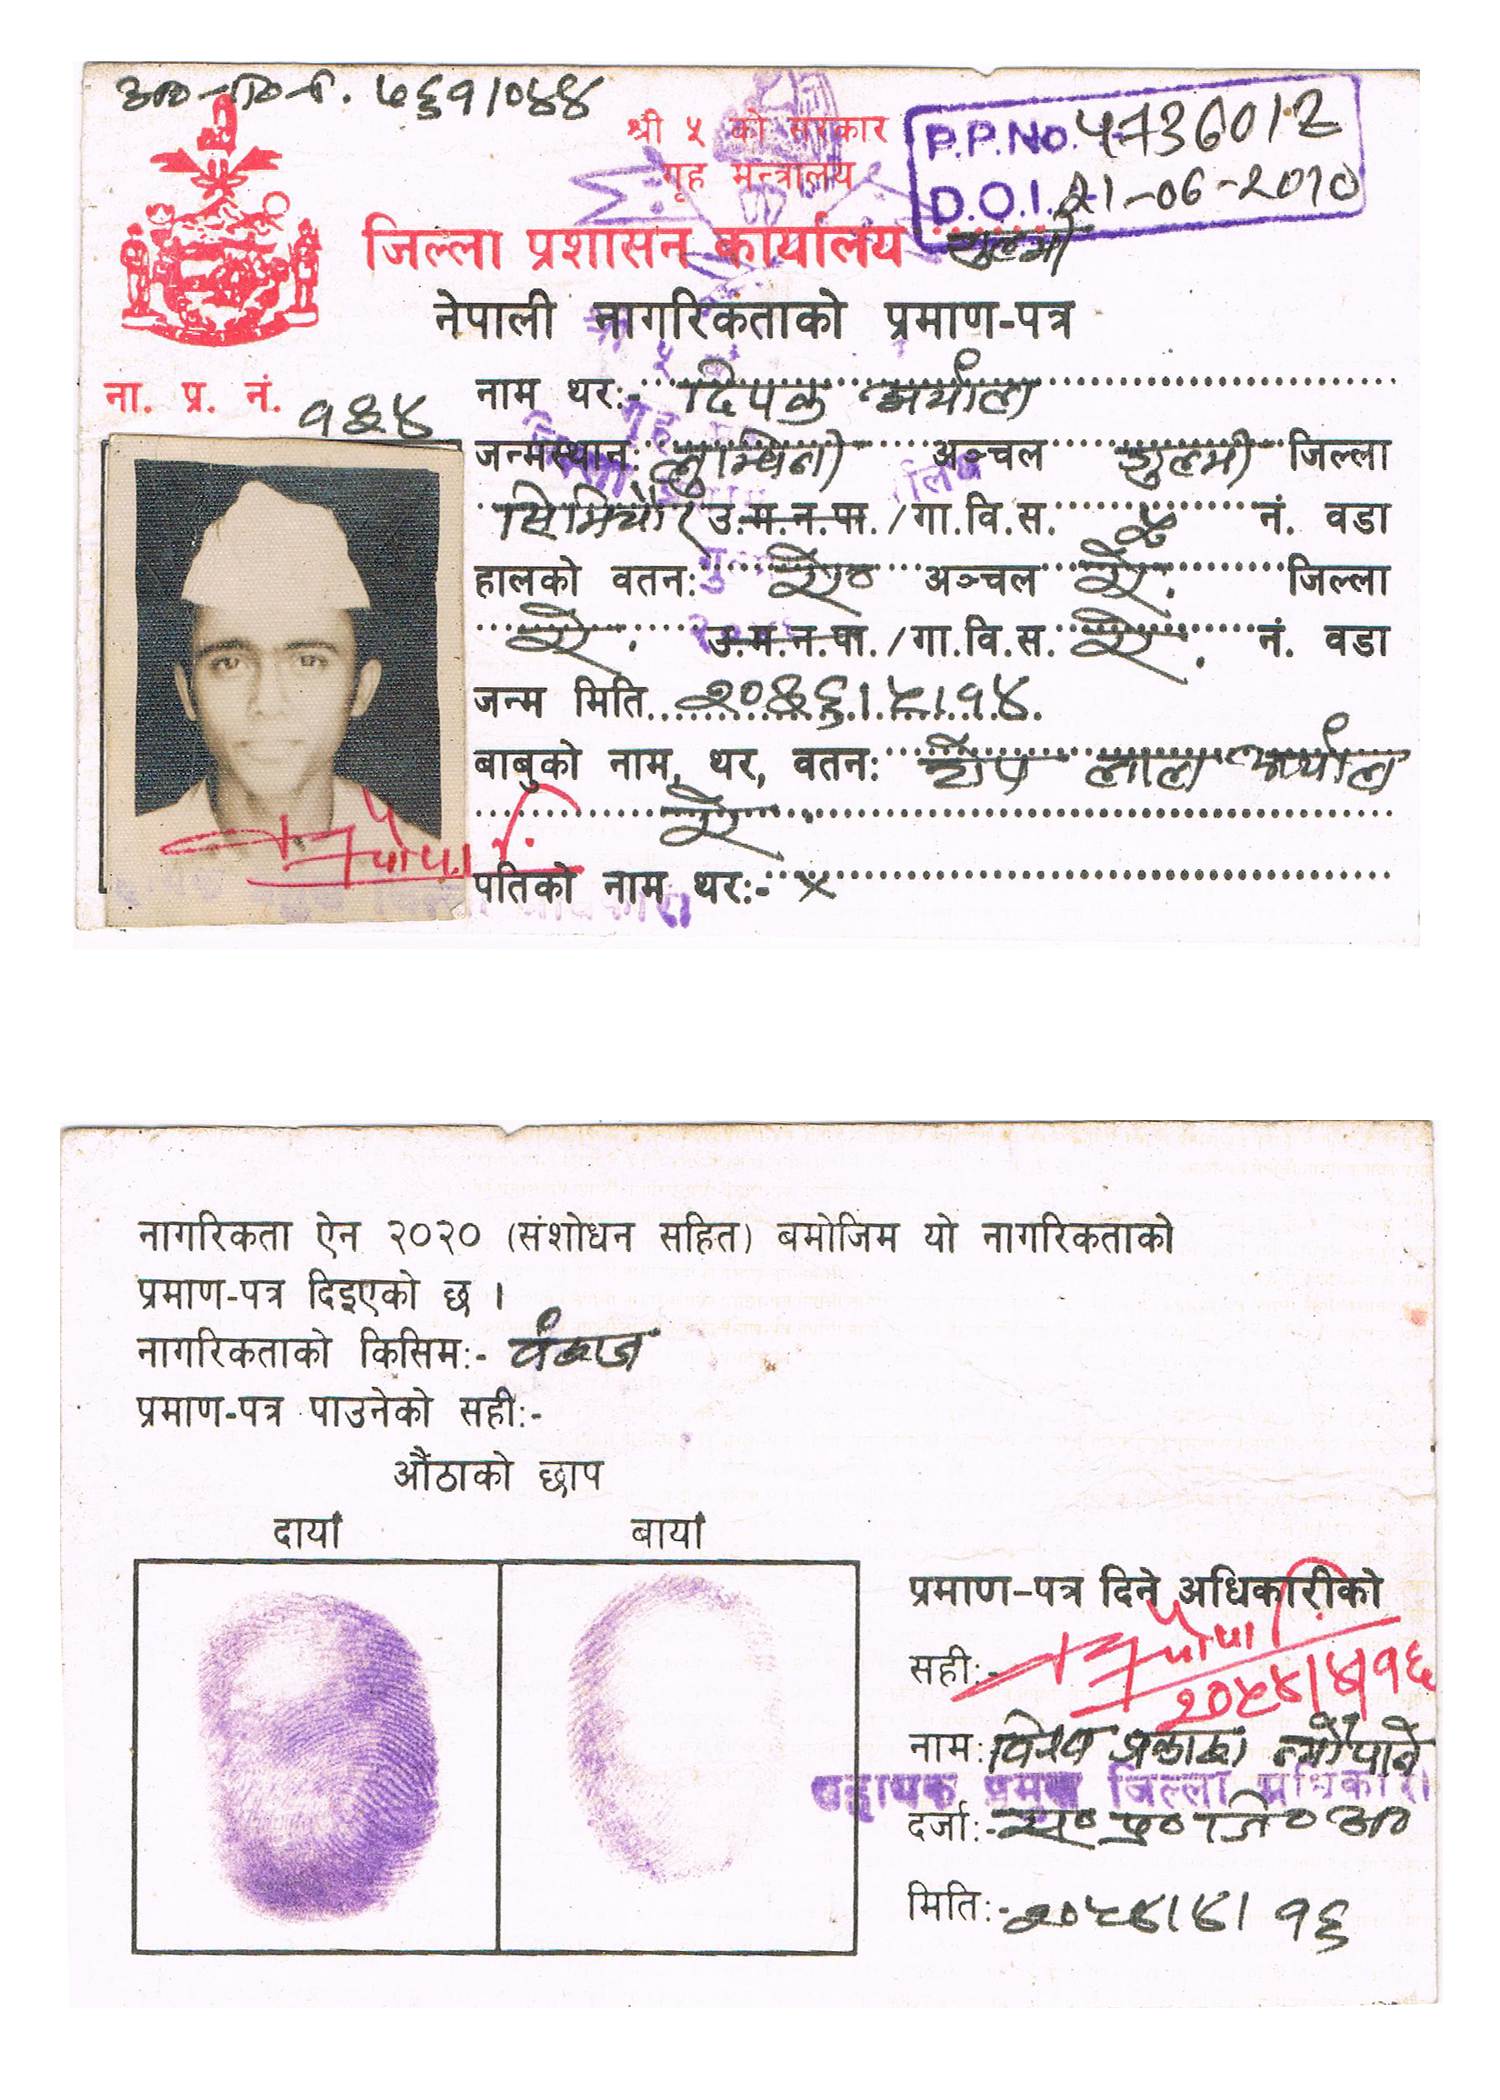 ७६१/०४४
श्री ५ को सरकार
गृह मन्त्रालय
P.P.No. 4736012
D.O.I. 21-06-2010
जिल्ला प्रशासन कार्यालय गुल्मी
नेपाली नागरिकताको प्रमाण-पत्र
ना. प्र. नं. १३४
नाम थर:- दिपक अर्याल
जन्मस्थान: लुम्बिनी अञ्चल गुल्मी जिल्ला
सिमिचौर उ.म.न.पा./गा.वि.स. ४ नं. वडा
हालको वतन: ऐ० अञ्चल ऐ. जिल्ला
ऐ. उ.म.न.पा./गा.वि.स. ऐ. नं. वडा
जन्म मिति २०३६।५।१४
बाबुको नाम, थर, वतन: लाल अर्याल
ऐ
पतिको नाम थर:- ×
नागरिकता ऐन २०२० (संशोधन सहित) बमोजिम यो नागरिकताको
प्रमाण-पत्र दिइएको छ ।
नागरिकताको किसिम:- वंशज
प्रमाण-पत्र पाउनेको सही:-
औंठाको छाप
दायाँ बायाँ
प्रमाण-पत्र दिने अधिकारीको
सही:-
२०५४।४।१६
नाम: विश्व प्रकाश न्यौपाने
सहायक प्रमुख जिल्ला अधिकारी
दर्जा:- स० प्र० जि० अ०
मिति:- २०५४।४।१६